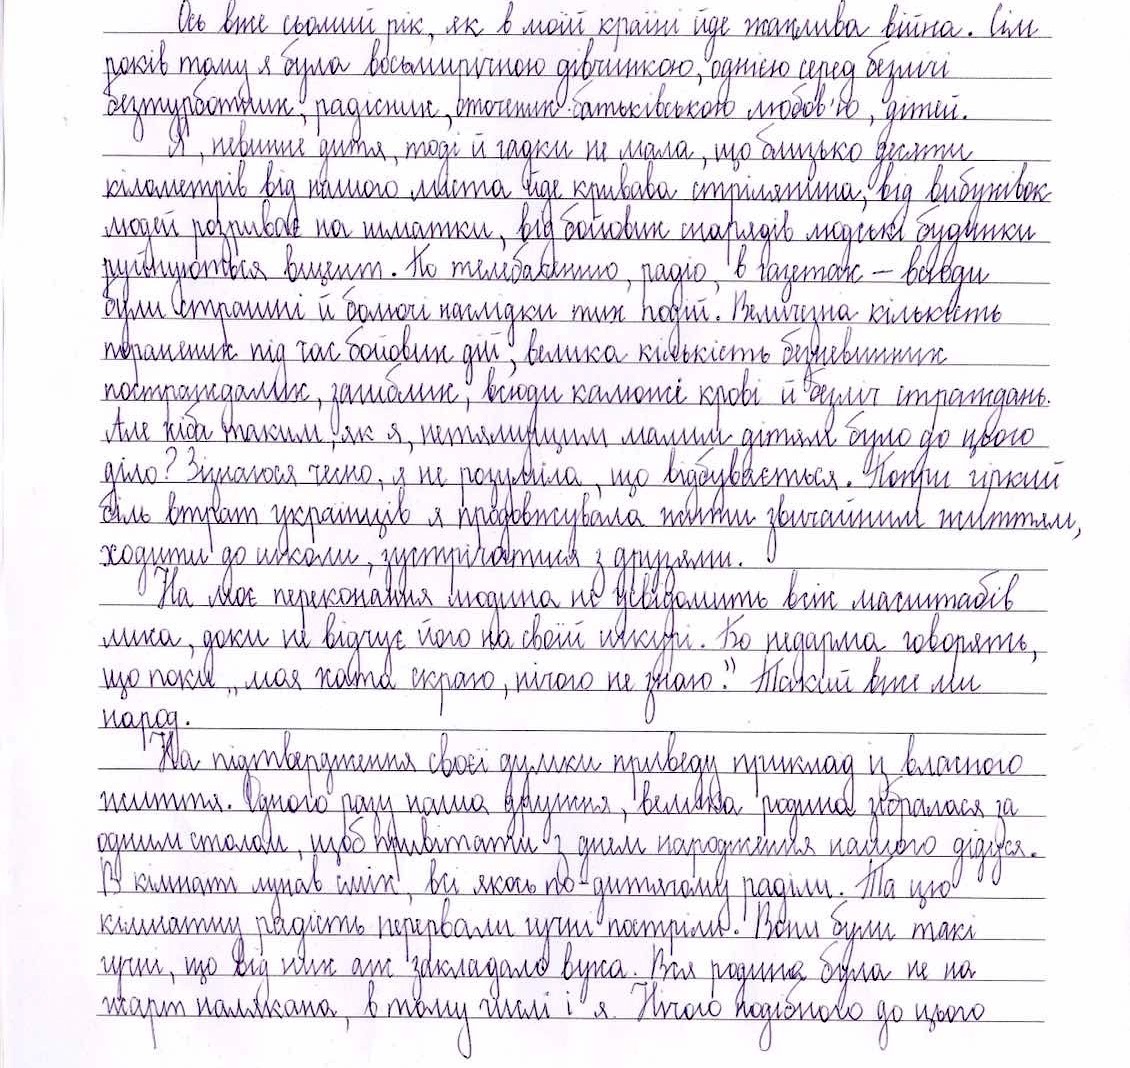 Ось вже сьомий рік, як в моїй країні йде жахлива війна. Сім
років тому я була восьмирічною дівчинкою, однією серед безлічі
безтурботних, радісних, оточених батьківською любов'ю, дітей.
Я, невинне дитя, тоді й гадки не мала, що близько десяти
кілометрів від нашого міста йде кривава стрілянина, від вибухівок
людей розриває на шматки, від бойових снарядів людські будинки
руйнуються вщент. По телебаченню, радіо, в газетах – всюди
були страшні й болючі наслідки тих подій. Величезна кількість
поранених під час бойових дій, велика кількість безневинних
постраждалих, загиблих, всюди калюжі крові й безліч страждань.
Але хіба таким, як я, нетямущим малим дітям було до цього
діло? Зізнаюся чесно, я не розуміла, що відбувається. Попри гіркий
біль втрат українців я продовжувала жити звичайним життям,
ходити до школи, зустрічатися з друзями.
На моє переконання людина не усвідомить всіх масштабів
лиха, доки не відчує його на своїй шкурі. Бо недарма говорять,
що поки „моя хата скраю, нічого не знаю." Такий вже ми
народ.
На підтвердження своєї думки приведу приклад із власного
життя. Одного разу наша дружня, велика родина зібралася за
одним столом, щоб привітати з днем народження нашого дідуся.
В кімнаті лунав сміх, всі якось по-дитячому раділи. Та цю
кімнатну радість перервали гучні постріли. Вони були такі
гучні, що від них аж закладало вуха. Вся родина була не на
жарт налякана, в тому числі і я. Нічого подібного до цього